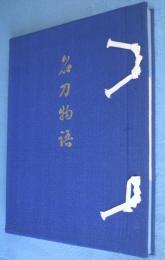 名刀物語